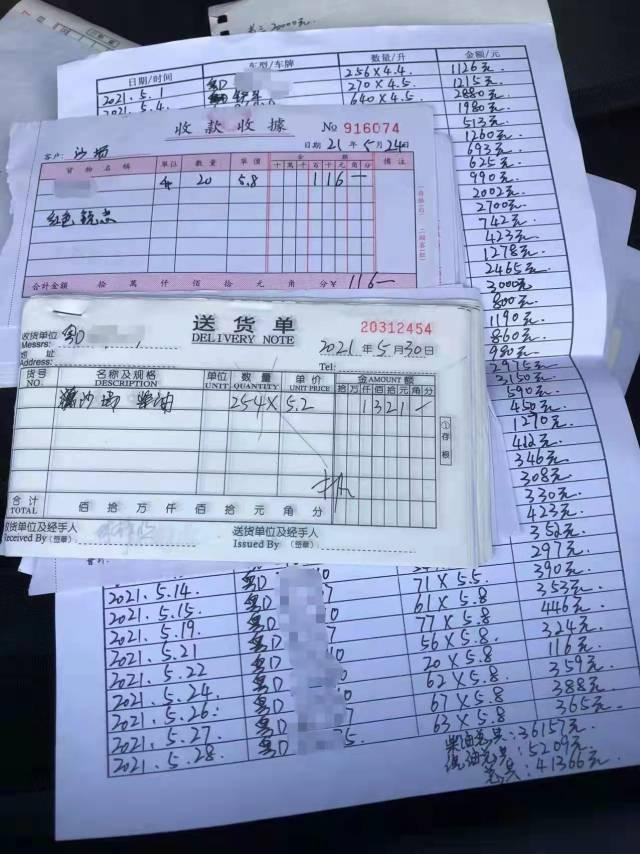 日期/时间 车型/车牌 数量/升 金额/元
2021.5.1 粤D 256×4.4 1126元
2021.5.4. 270×4.5 1215元
640×4.5 2880元
1980元
513元
1260元
693元
625元
990元
2002元
2700元
742元
423元
1278元
2465元
3000元
800元
1190元
860元
980元
2975元
3150元
590元
450元
1270元
412元
346元
308元
330元
423元
352元
297元
390元
收款收據 No 916074
日期 21年5月24日
客户: 沙场
貨物名稱 單位 數量 單價 金額 備注
十 萬 千 百 十 元 角 分
20 5.8 116—
合計金額 拾 萬 仟 佰 拾 元 角 分 ¥116—
送货单 20312454
DELIVERY NOTE
收货单位 粤D
Messrs:
2021年5月30日
地址
Address:
Tel:
货号 名称及规格 单位 数量 单价 金 AMOUNT 额
NO. DESCRIPTION UNIT QUANTITY UNIT PRICE 拾 万 仟 佰 拾 元 角 分
沙场 柴油 254× 5.2 1321—
①存根
合计 佰 拾 万 仟 佰 拾 元 角 分
TOTAL
收货单位及经手人 送货单位及经手人
Received By (签章) Issued By (签章)
2021.5.14. 粤D 71×5.5 353元
2021.5.15. 粤D 61×5.8 446元
2021.5.19. 粤D 77×5.8 324元
2021.5.21 粤D 56×5.8 116元
2021.5.22 粤D 20×5.8 359元
2021.5.24. 粤D 62×5.8 388元
2021.5.26. 粤D 67×5.8 365元
2021.5.27. 粤D 63×5.8
2021.5.28. 粤D
柴油总共:36157元
汽油总共:5209元
总共:41366元